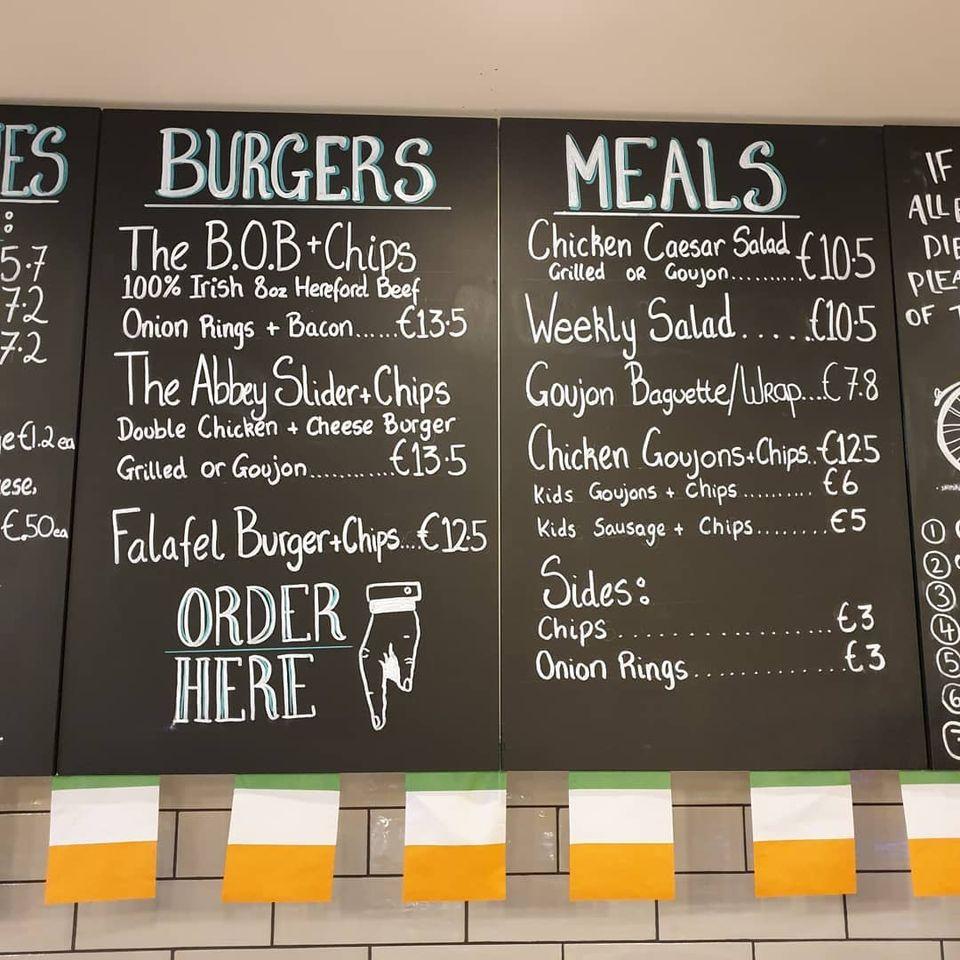 ES
:
5.7
7.2
7.2
€1.2 ea
ese,
€.50ea
BURGERS
The B.O.B + Chips
100% Irish 8oz Hereford Beef
Onion Rings + Bacon.....€13.5
The Abbey Slider + Chips
Double Chicken + Cheese Burger
Grilled or Goujon..........€13.5
Falafel Burger + Chips...€12.5
ORDER
HERE
MEALS
Chicken Caesar Salad €10.5
Grilled OR Goujon.........
Weekly Salad......€10.5
Goujon Baguette/Wrap...€7.8
Chicken Goujons + Chips..€12.5
Kids Goujons + Chips.......... €6
Kids Sausage + Chips........€5
Sides:
Chips..................€3
Onion Rings.............€3
IF
ALL
DIE
PLEA
OF T
1
2
3
4
5
6
7